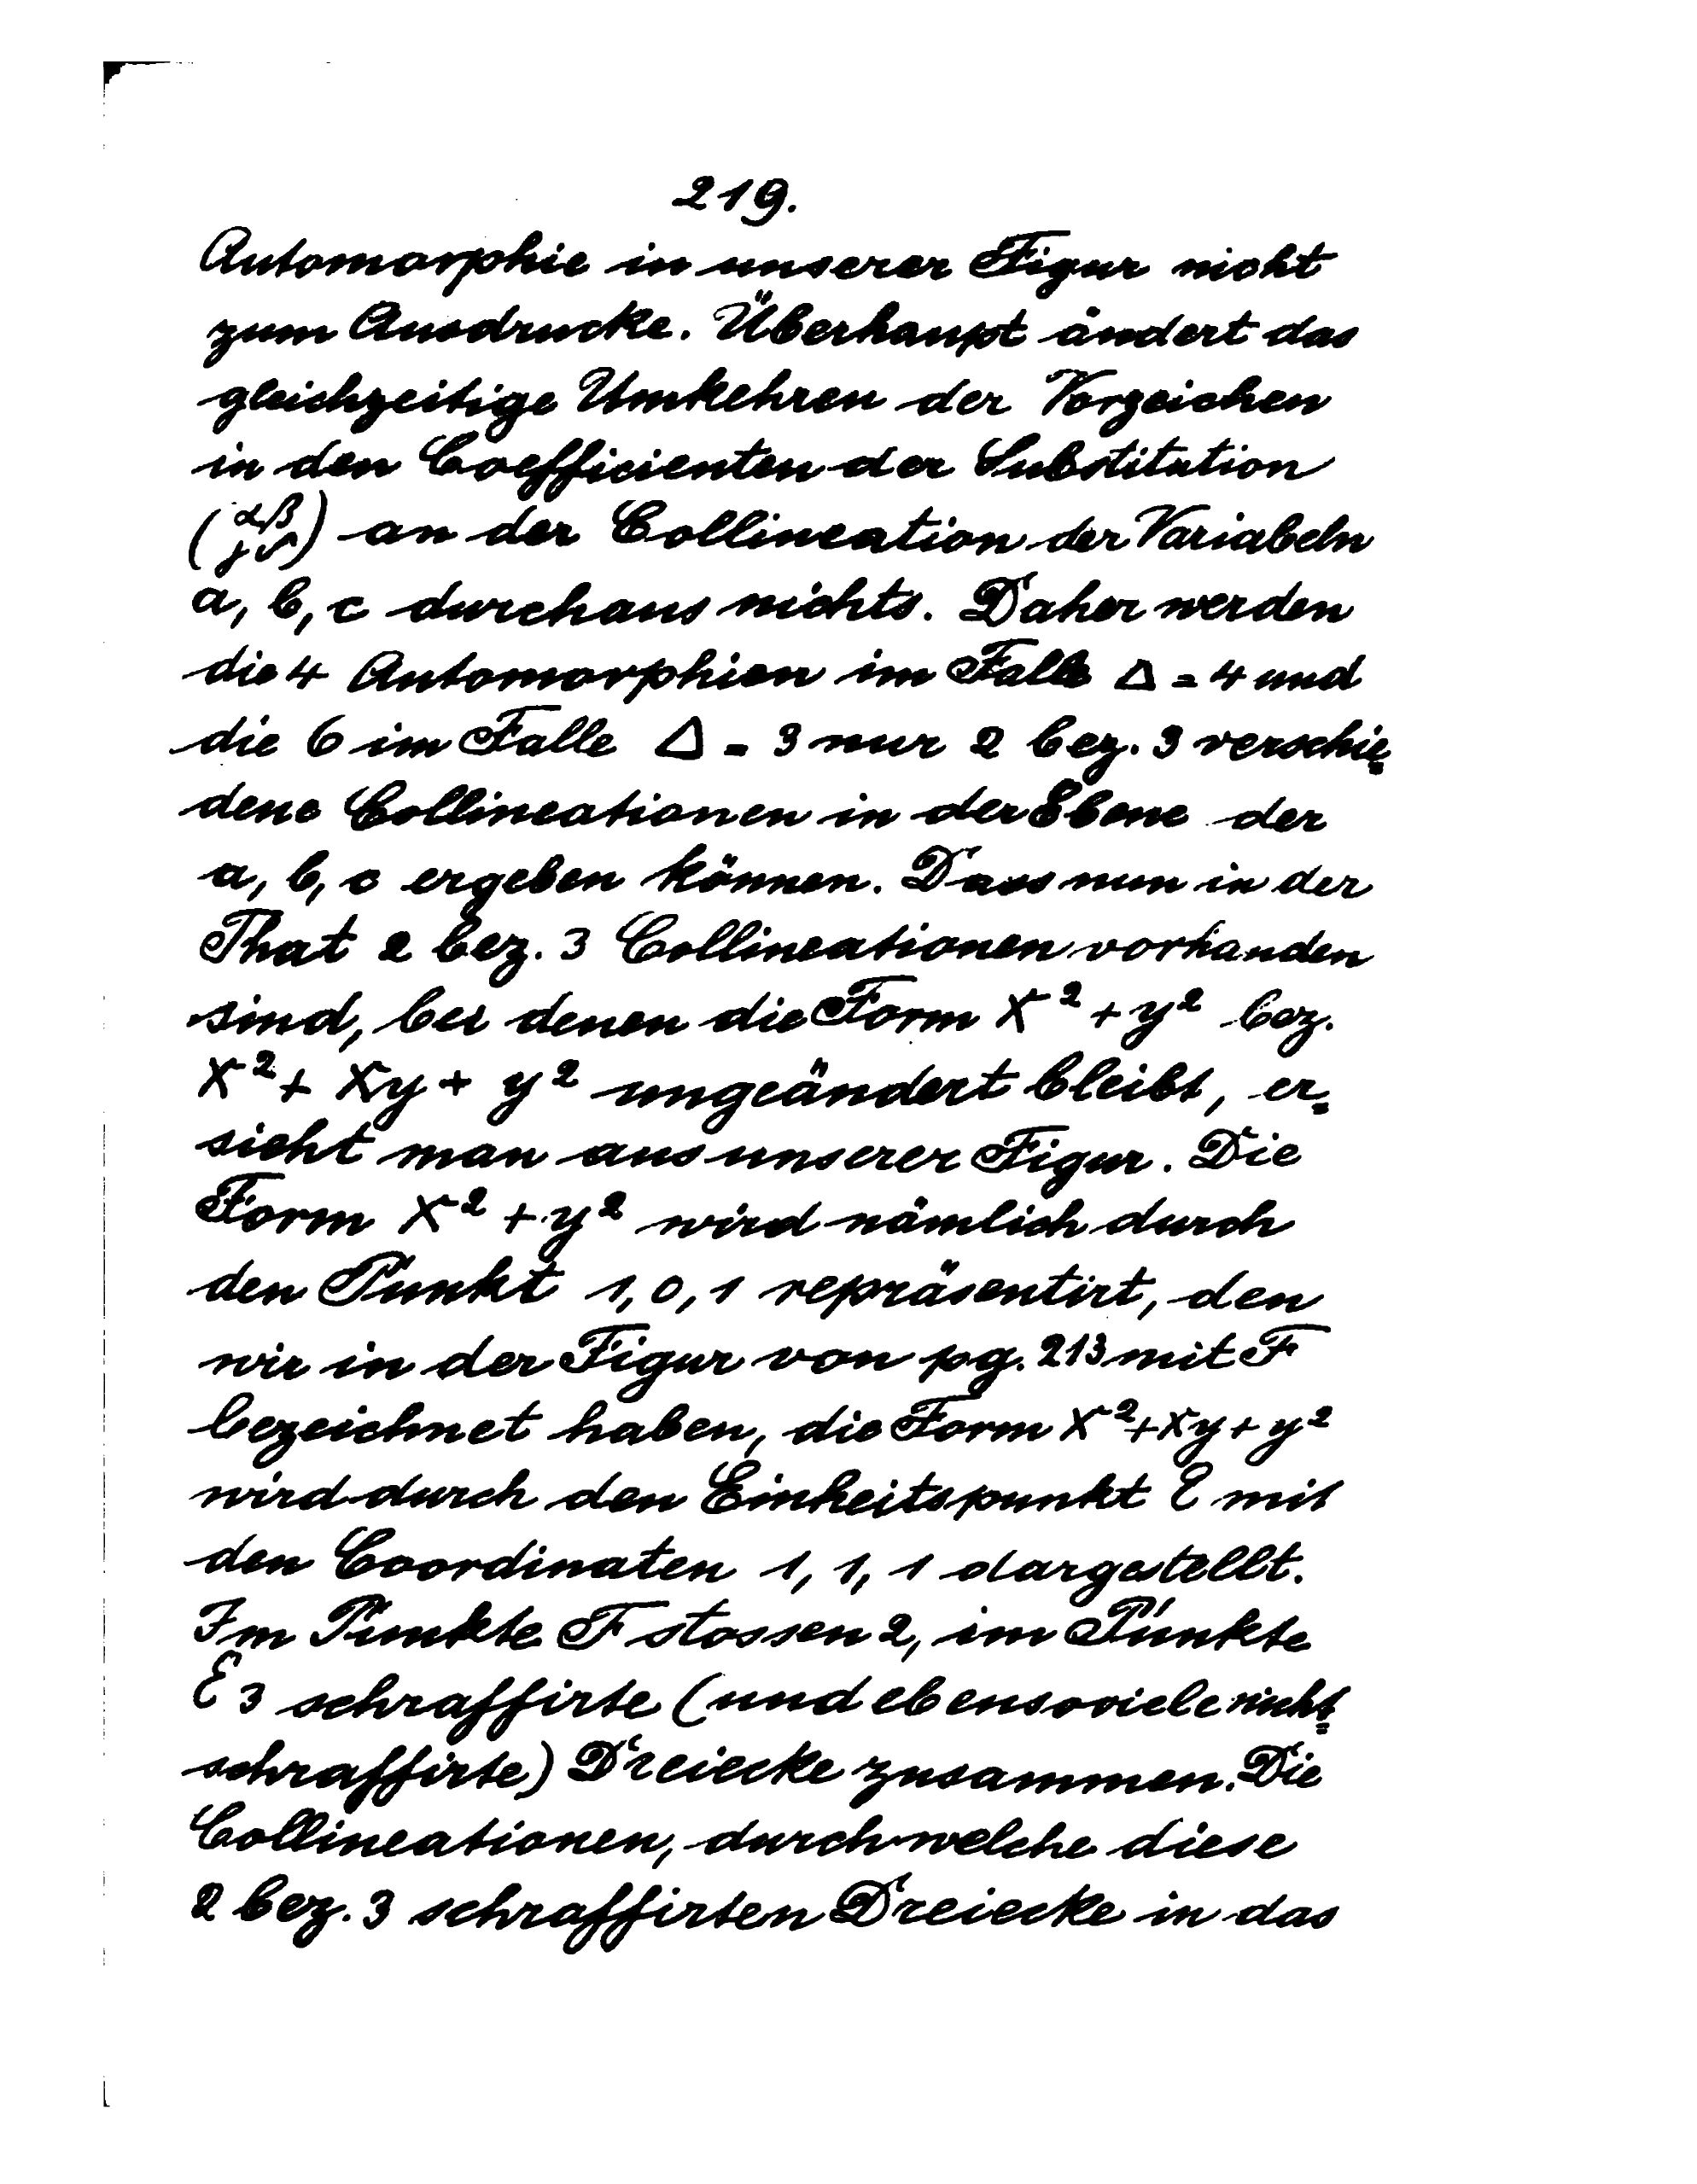 219.
Automorphie in unserer Figur nicht
zum Ausdrucke. Überhaupt ändert das
gleichzeitige Umkehren der Vorzeichen
in den Coefficienten der Substitution
(αβ
γδ) an der Collineation der Variabeln
a, b, c durchaus nichts. Daher werden
die 4 Automorphien im Falle Δ = 4 und
die 6 im Falle Δ = 3 nur 2 bez. 3 verschie=
dene Collineationen in der Ebene der
a, b, c ergeben können. Dass nun in der
That 2 bez. 3 Collineationen vorhanden
sind, bei denen die Form x² + y² bez.
x² + xy + y² ungeändert bleibt, er=
sieht man aus unserer Figur. Die
Form x² + y² wird nämlich durch
den Punkt 1, 0, 1 repräsentirt, den
wir in der Figur von pg. 213 mit F
bezeichnet haben, die Form x²+xy+y²
wird durch den Einheitspunkt E mit
den Coordinaten 1, 1, 1 dargestellt.
Im Punkte F stossen 2, im Punkte
E 3 schraffirte (und ebensoviele nicht=
schraffirte) Dreiecke zusammen. Die
Collineationen, durch welche diese
2 bez. 3 schraffirten Dreiecke in das